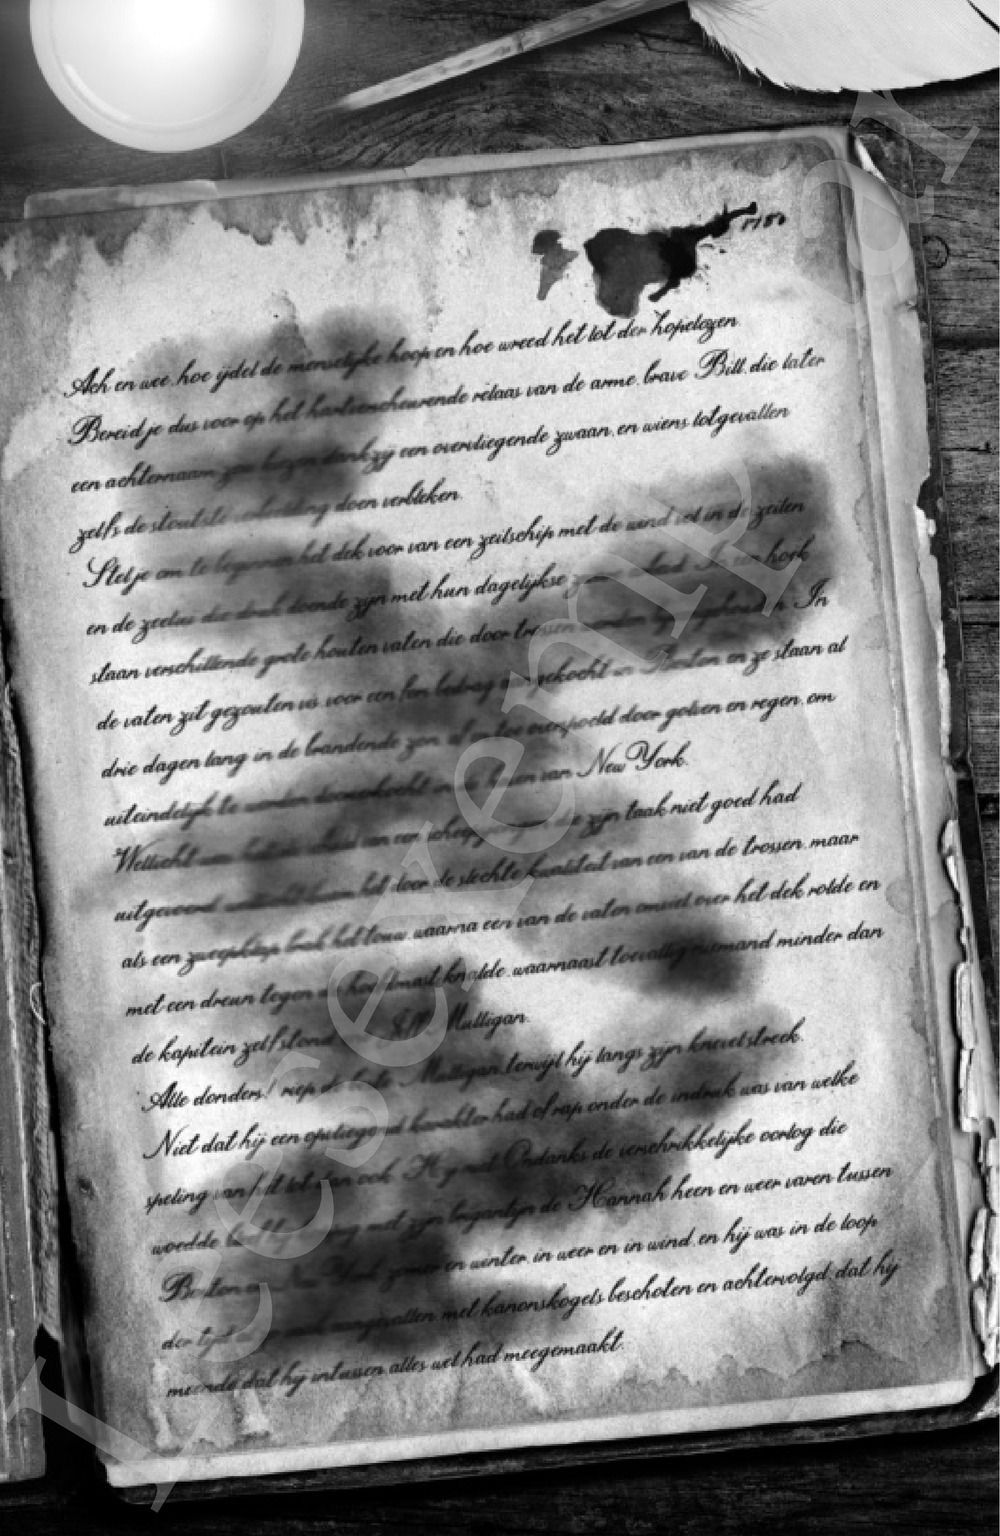 1780
Ach en wee, hoe ijdel de menselijke hoop en hoe wreed het lot der hopelozen.
Bereid je dus voor op het hartverscheurende relaas van de arme, brave Bill, die later
een achternaam zou krijgen dankzij een overvliegende zwaan, en wiens lotgevallen
zelfs de stoutste verbeelding doen verbleken.
Stel je om te beginnen het dek voor van een zeilschip met de wind vol in de zeilen
en de zeelui die druk doende zijn met hun dagelijkse In een hoek
staan verschillende grote houten vaten die door trossen worden In
de vaten zit gezouten vis voor een bedrag gekocht in Boston en ze staan al
drie dagen lang in de brandende zon, af en toe overspoeld door golven en regen, om
uiteindelijk te worden in de haven van New York.
Wellicht was van een scheepsjongen die zijn taak niet goed had
uitgevoerd, wellicht kwam het door de slechte kwaliteit van een van de trossen, maar
als een zweepklap brak het touw, waarna een van de vaten omviel, over het dek rolde en
met een dreun tegen de hoofdmast knalde, waarnaast toevallig niemand minder dan
de kapitein zelf stond, Mulligan.
'Alle donders!' riep de Mulligan, terwijl hij langs zijn knevel streek.
Niet dat hij een opvliegend karakter had of rap onder de indruk was van welke
speling van het lot dan ook. Hij niet. Ondanks de verschrikkelijke oorlog die
woedde bleef hij met zijn brigantijn de Hannah heen en weer varen tussen
Boston en New York, zomer en winter, in weer en in wind, en hij was in de loop
der tijd al aangevallen, met kanonskogels beschoten en achtervolgd, dat hij
meende dat hij intussen alles wel had meegemaakt.
Leesexemplaar